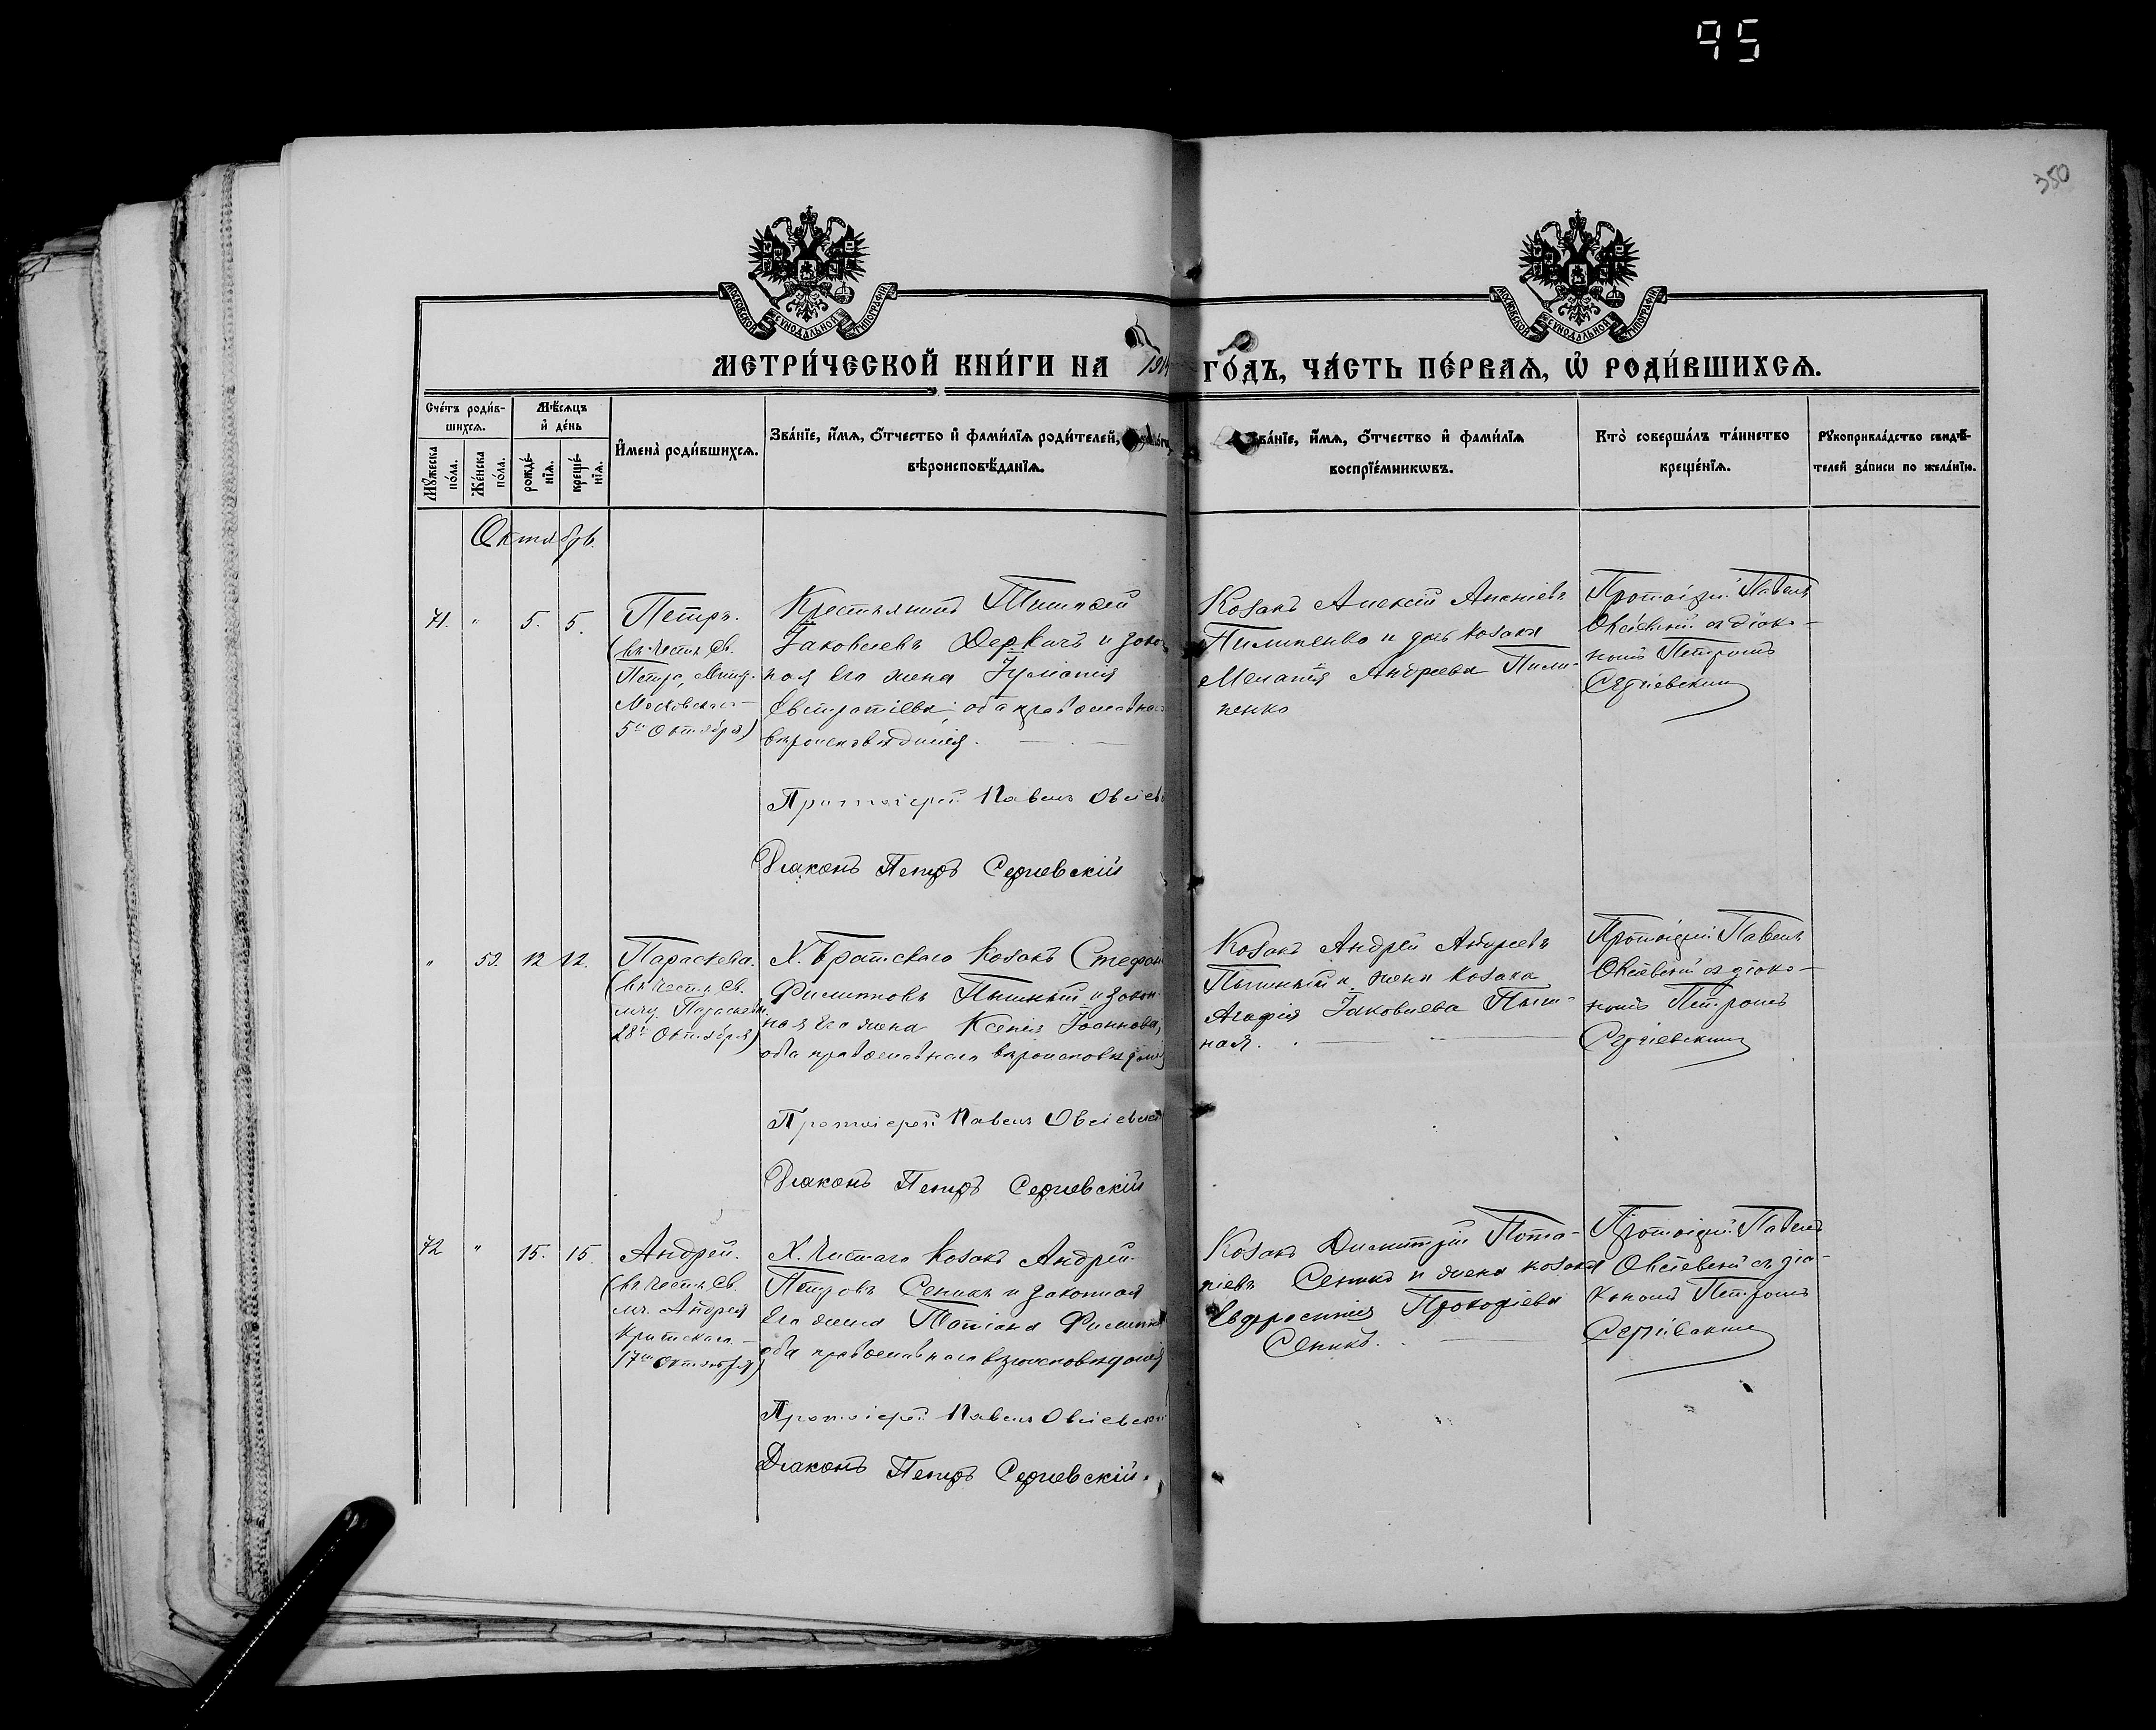 95
350
МОСКОВСКОЙ СѴНОДАЛЬНОЙ ТИПОГРАФІИ
МОСКОВСКОЙ СѴНОДАЛЬНОЙ ТИПОГРАФІИ
МЕТРИ́ЧЕСКОЙ КНИ́ГИ НА 191 ГО́ДЪ, ЧА́СТЬ ПЕ́РВАѦ, Ѡ҆ РОДИ́ВШИХСѦ.
Сче́тъ роди́в-
шихсѧ.
Мꙋ́жеска по́ла.
Же́нска по́ла.
Мѣ́сѧцъ
и҆ де́нь
рожде́-
нїѧ.
креще́-
нїѧ.
И҆мена̀ роди́вшихсѧ.
Зва́нїе, и҆́мѧ, ѻ҆́тчество и҆ фами́лїѧ роди́телей,
вѣроисповѣ́данїѧ.
Зва́нїе, и҆́мѧ, ѻ҆́тчество и҆ фами́лїѧ
воспрїе́мникѡвъ.
Кто̀ соверша́лъ та́инство
креще́нїѧ.
Рꙋкоприкла́дство свидѣ́-
телей за́писи по жела́нїю.
Октябрь.
71. " 5. 5.
Петръ.
(въ честь Св.
Петра, Митр.
Московскаго
5го Октября)
Крестьянинъ
Іаковлевъ Деркачъ и закон
ная его жена Іуліанія
Евстратіева, оба православнаго
вѣроисповѣданія.
Протоіерей Павелъ Овсіев
Діаконъ Петръ Сергіевскій
Козакъ Алексій
Пилипенко и дочь козака
Меланія Андреева Пили-
пенко
Протоіерей Павелъ
Овсіевскій съ діако-
номъ Петромъ
Сергіевскимъ
" 53. 12 12.
Параскева.
(въ честь Св.
муч. Параскевы
28го Октября)
Х. Братскаго Козакъ Стефанъ
Филипповъ Пышный и закон
ная его жена Ксенія Іоаннова,
оба православнаго вѣроисповѣданія
Протоіерей Павелъ Овсіевскій
Діаконъ Петръ Сергіевскій
Козакъ Андрей Андреевъ
Пышный и жена козака
Агафія Іаковлева Пыш-
ная.
Протоіерей Павелъ
Овсіевскій съ діако-
номъ Петромъ
Сергіевскимъ
72 " 15. 15.
Андрей.
(въ честь Св.
м. Андрея
Критскаго
17го Октября)
Х. Чистаго Козакъ Андрей
Петровъ Сеникъ и законная
его жена Татіана Филиппова
оба православнаго вѣроисповѣданія
Протоіерей Павелъ Овсіевскій
Діаконъ Петръ Сергіевскій.
Козакъ Димитрій Пота-
піевъ Сеникъ и жена козака
Евфросинія Прокофіева
Сеникъ.
Протоіерей Павелъ
Овсіевскій съ діа-
кономъ Петромъ
Сергіевскимъ